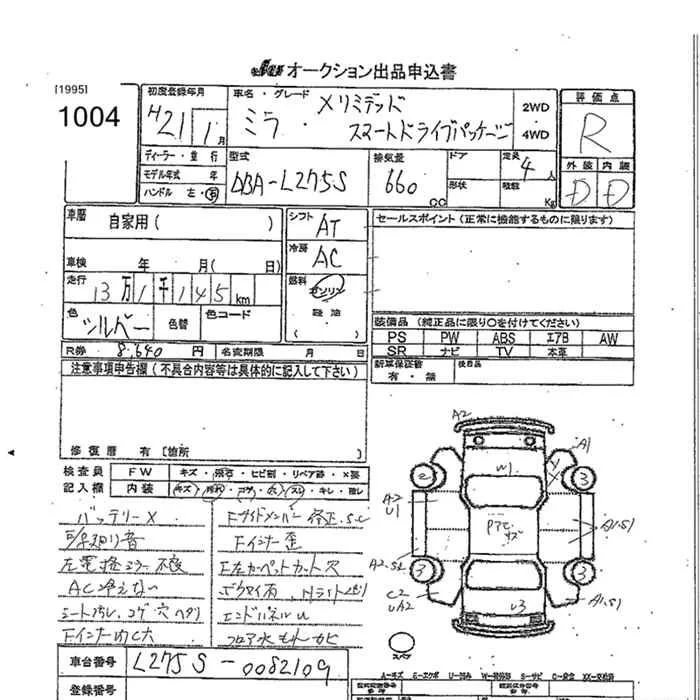 オークション出品申込書
[1995]
1004
初度登録年月
H21 1月
車名・グレード
ミラ・
Xリミテッド
スマートドライブパッケージ
2WD
4WD
評価点
R
外装 内装
D D
ディーラー・並行
モデル年式 年
ハンドル 左・右
型式
DBA-L275S
排気量
660
CC
ドア
形状
定員
4人
積載
Kg
車歴
自家用( )
車検 年 月( 日)
走行
13万1千145km
色
シルバー
色替
色コード
シフト
AT
冷房
AC
燃料
ガソリン
軽油
( )
セールスポイント(正常に機能するものに限ります)
装備品(純正品に限り〇を付けてください)
PS PW ABS エアB AW
SR ナビ TV 本革
新車保証書
有・無
後日品
R券 8,640円 名変期限 月 日
注意事項申告欄(不具合内容等は具体的に記入して下さい)
修復歴 有 [箇所
検査員
記入欄
FW
内装
バッテリーX
左電格ミラー不良
AC冷えない
シート汚れ、コゲ穴ヘタリ
FサイドメンバーF修正,S,C
Fインナー歪
F左カーペットカット穴
エンドパネルU
フロア水もれカビ
A2
A1
W1
2
3
A2
U1
A1,S1
A2,S2
3
3
C2
UA2
A1,S1
U3
スペア
車台番号
L275S-0082109
登録番号